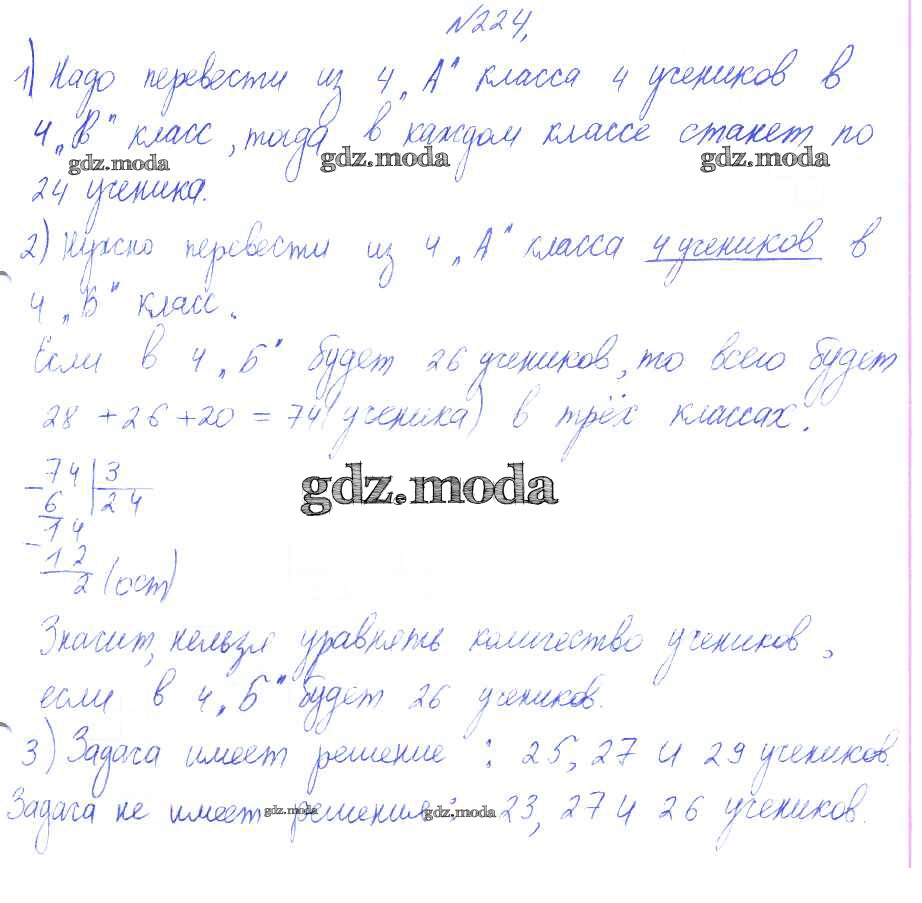 №224.
1) Надо перевести из 4 „А" класса 4 учеников в
4 „В" класс, тогда в каждом классе станет по
gdz.moda gdz.moda gdz.moda
24 ученика.
2) Нужно перевести из 4 „А" класса 4 учеников в
4 „В" класс.
Если в 4 „Б" будет 26 учеников, то всего будет
28 + 26 + 20 = 74 (ученика) в трёх классах.
- 74 | 3
6 | 24
gdz.moda
- 14
12
2 (ост)
Значит, нельзя уравнять количество учеников,
если в 4 „Б" будет 26 учеников.
3) Задача имеет решение : 25, 27 и 29 учеников.
Задача не имеет решения : 23, 27 и 26 учеников.
gdz.moda gdz.moda